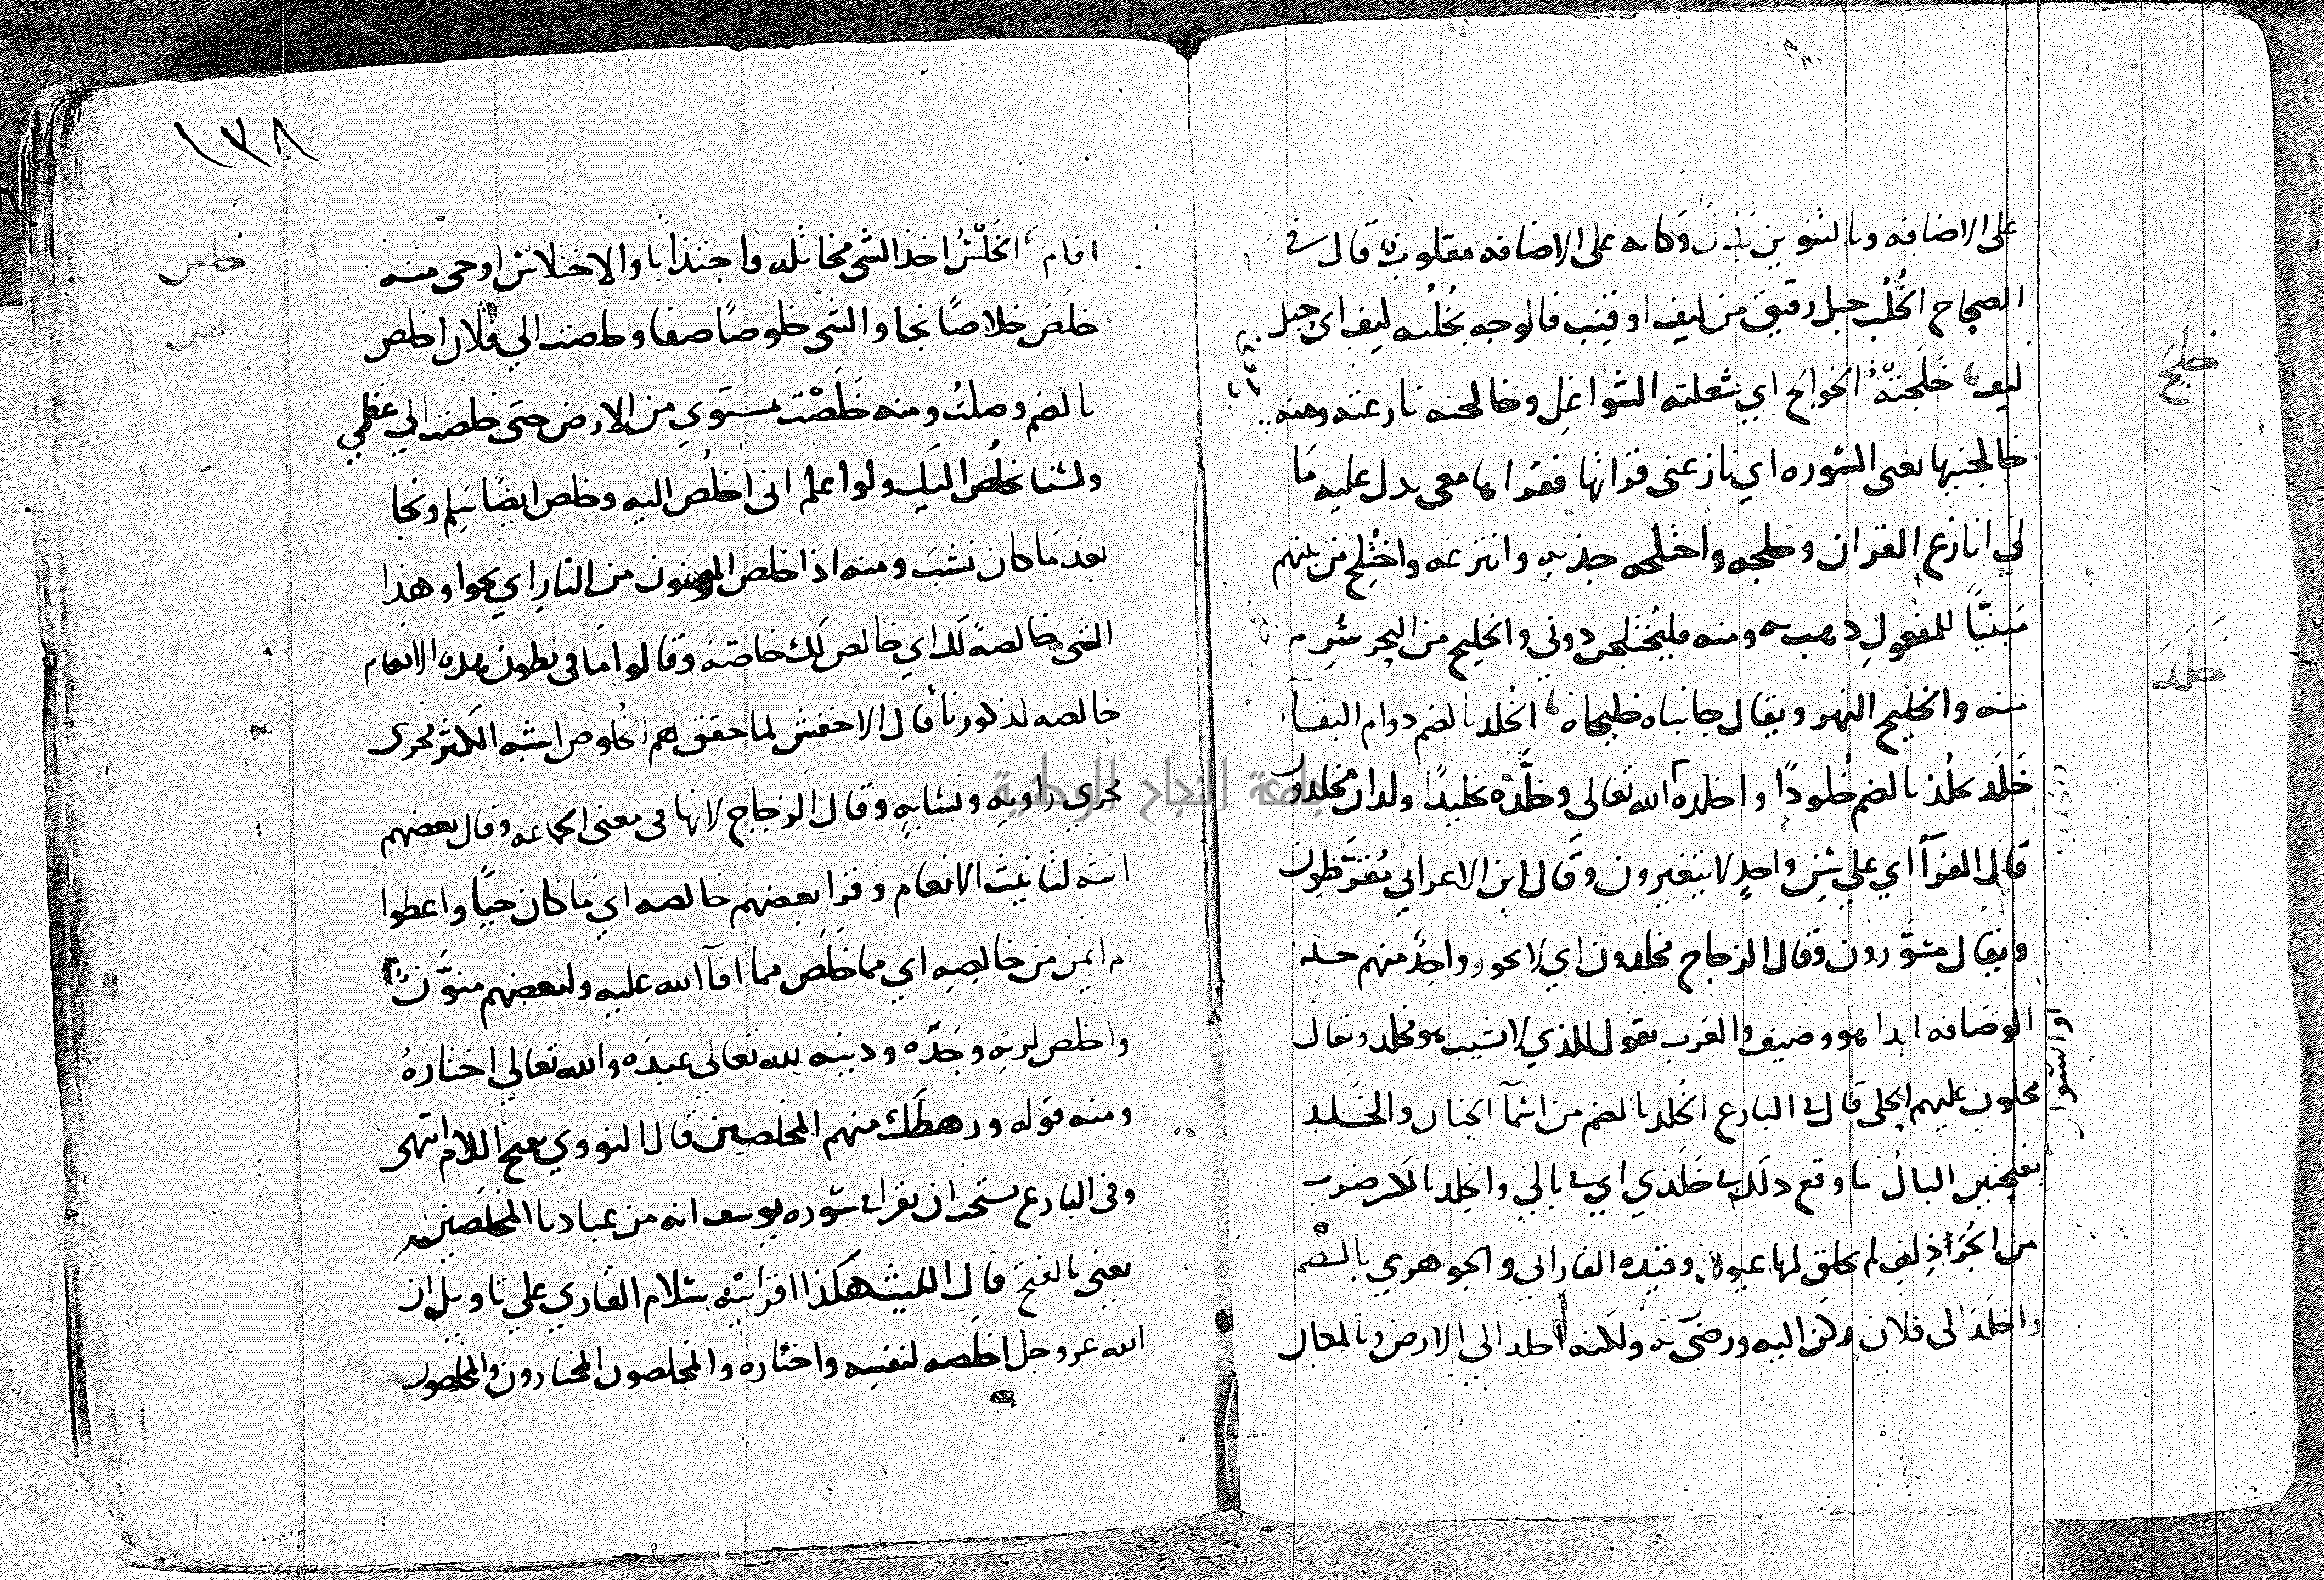 على الاضافه وبالتنوين بدل وكانه على الاضافه مقلوب قال في
الصحاح الخُلْب حبل رقيق من ليف او قنب فالوجه بخُلْبه ليف اي حبل
ليف خَلَجَتْهُ الخوالج اي شغلته الشواغل وخالجنه نازعنه ومنه
خالجنيها يعنى السوره اي نازعنى قراتها فقرا بها معى يدل عليه مَا
لي انازع القران وخلجه واختلجه جذبه وانتزعه واختُلِج من بينهم
مبنيًا للمفعول ذهب به ومنه فليُختلجن دوني والخليج من البحر شرم
منه والخليج النهر ويقال جانباه خليجاه الخُلد بالضم دوام البقاء
خَلَدَ يخلُد بالضم خُلودًا واخلده الله تعالى وخلَّده تخليدًا ولدان مخلدون
قال الفرآ اي على سِنٍّ واحدٍ لا يتغيرون وقال ابن الاعرابي مُقرَّطون
ويقال مسوّرون وقال الزجاج مخلدون اي لا يجوز واحِدٌ منهم حد
الوصَافه ابدا هو وصيف والعَرب تقول للذي لا يشيب هو مخلد ويقال
مخلدون عليهم الحلى قال في البارع الخُلد بالضم من اسمآ الجنان والخَلَد
بفتحتين البال ما وقع ذلك في خَلَدي اي في بالي والخِلد بالكسر ضرب
من الجُرْذان لم يخلق لها عيون وقيده الفارابي والجوهري بالضم
واخلَد الى فلان ركن اليه ورضى به ولكنه اخلد الى الارض وبالمكان
خلج
خَلَدَ
او السوار
١٣٨
اقام الخَلْسُ اخذ الشى مخاتله واجتذابا والاختلاس اوحى منه
خلَص خلاصًا نجا والشى خلوصًا صفا وخلصت الي فلان اخلص
بالضم وصلتُ ومنه خَلَصْت بمستوى من الارض حتى خلصت الي عَظمي
ولسنا نخلُص اليك ولو اعلم انى اخلُص اليه وخلص ايضًا سَلِم ونجا
بعد مَا كان نشبَ ومنه اذا خلص المومنون من النار اي نجوا وهذا
الشى خالصةً لك اي خالص لك خاصّة وقالوا ما في بطون هذه الانعام
خالصه لذكورنا قال الاخفش لما حقق لهم الخلوص اشبه الكثره فجرى
مجرى راويه ونسّابهٍ وقال الزجاج لانها في معنى الجماعه وقال بعضهم
انثه لتانيث الانعام وقرا بعضهم خالصه اي مَا كان حيًّا واعطوا
ام ايمن من خالصِهِ اي مما خَلَص مما افآ الله عليه ولبعضهم منوَّنٌ
واخلص لربه وحَدَّه ودينه لله تعالى عبدَه والله تعالي اختارَهُ
ومنه قوله ورهطَك منهم المخلصين قال النووي بفتح اللام انتهى
وفى البارع يستحب ان يقرا في سوره يوسف انه من عبادنا المخلَصين
يعنى بالفتح قال الليث هكذا اقرانيه سلام القاري على تاويل ان
الله عز وجل اخلَصه لنفسِه واختاره والمخلصون المختارون والمخلصون
خلس
خلص